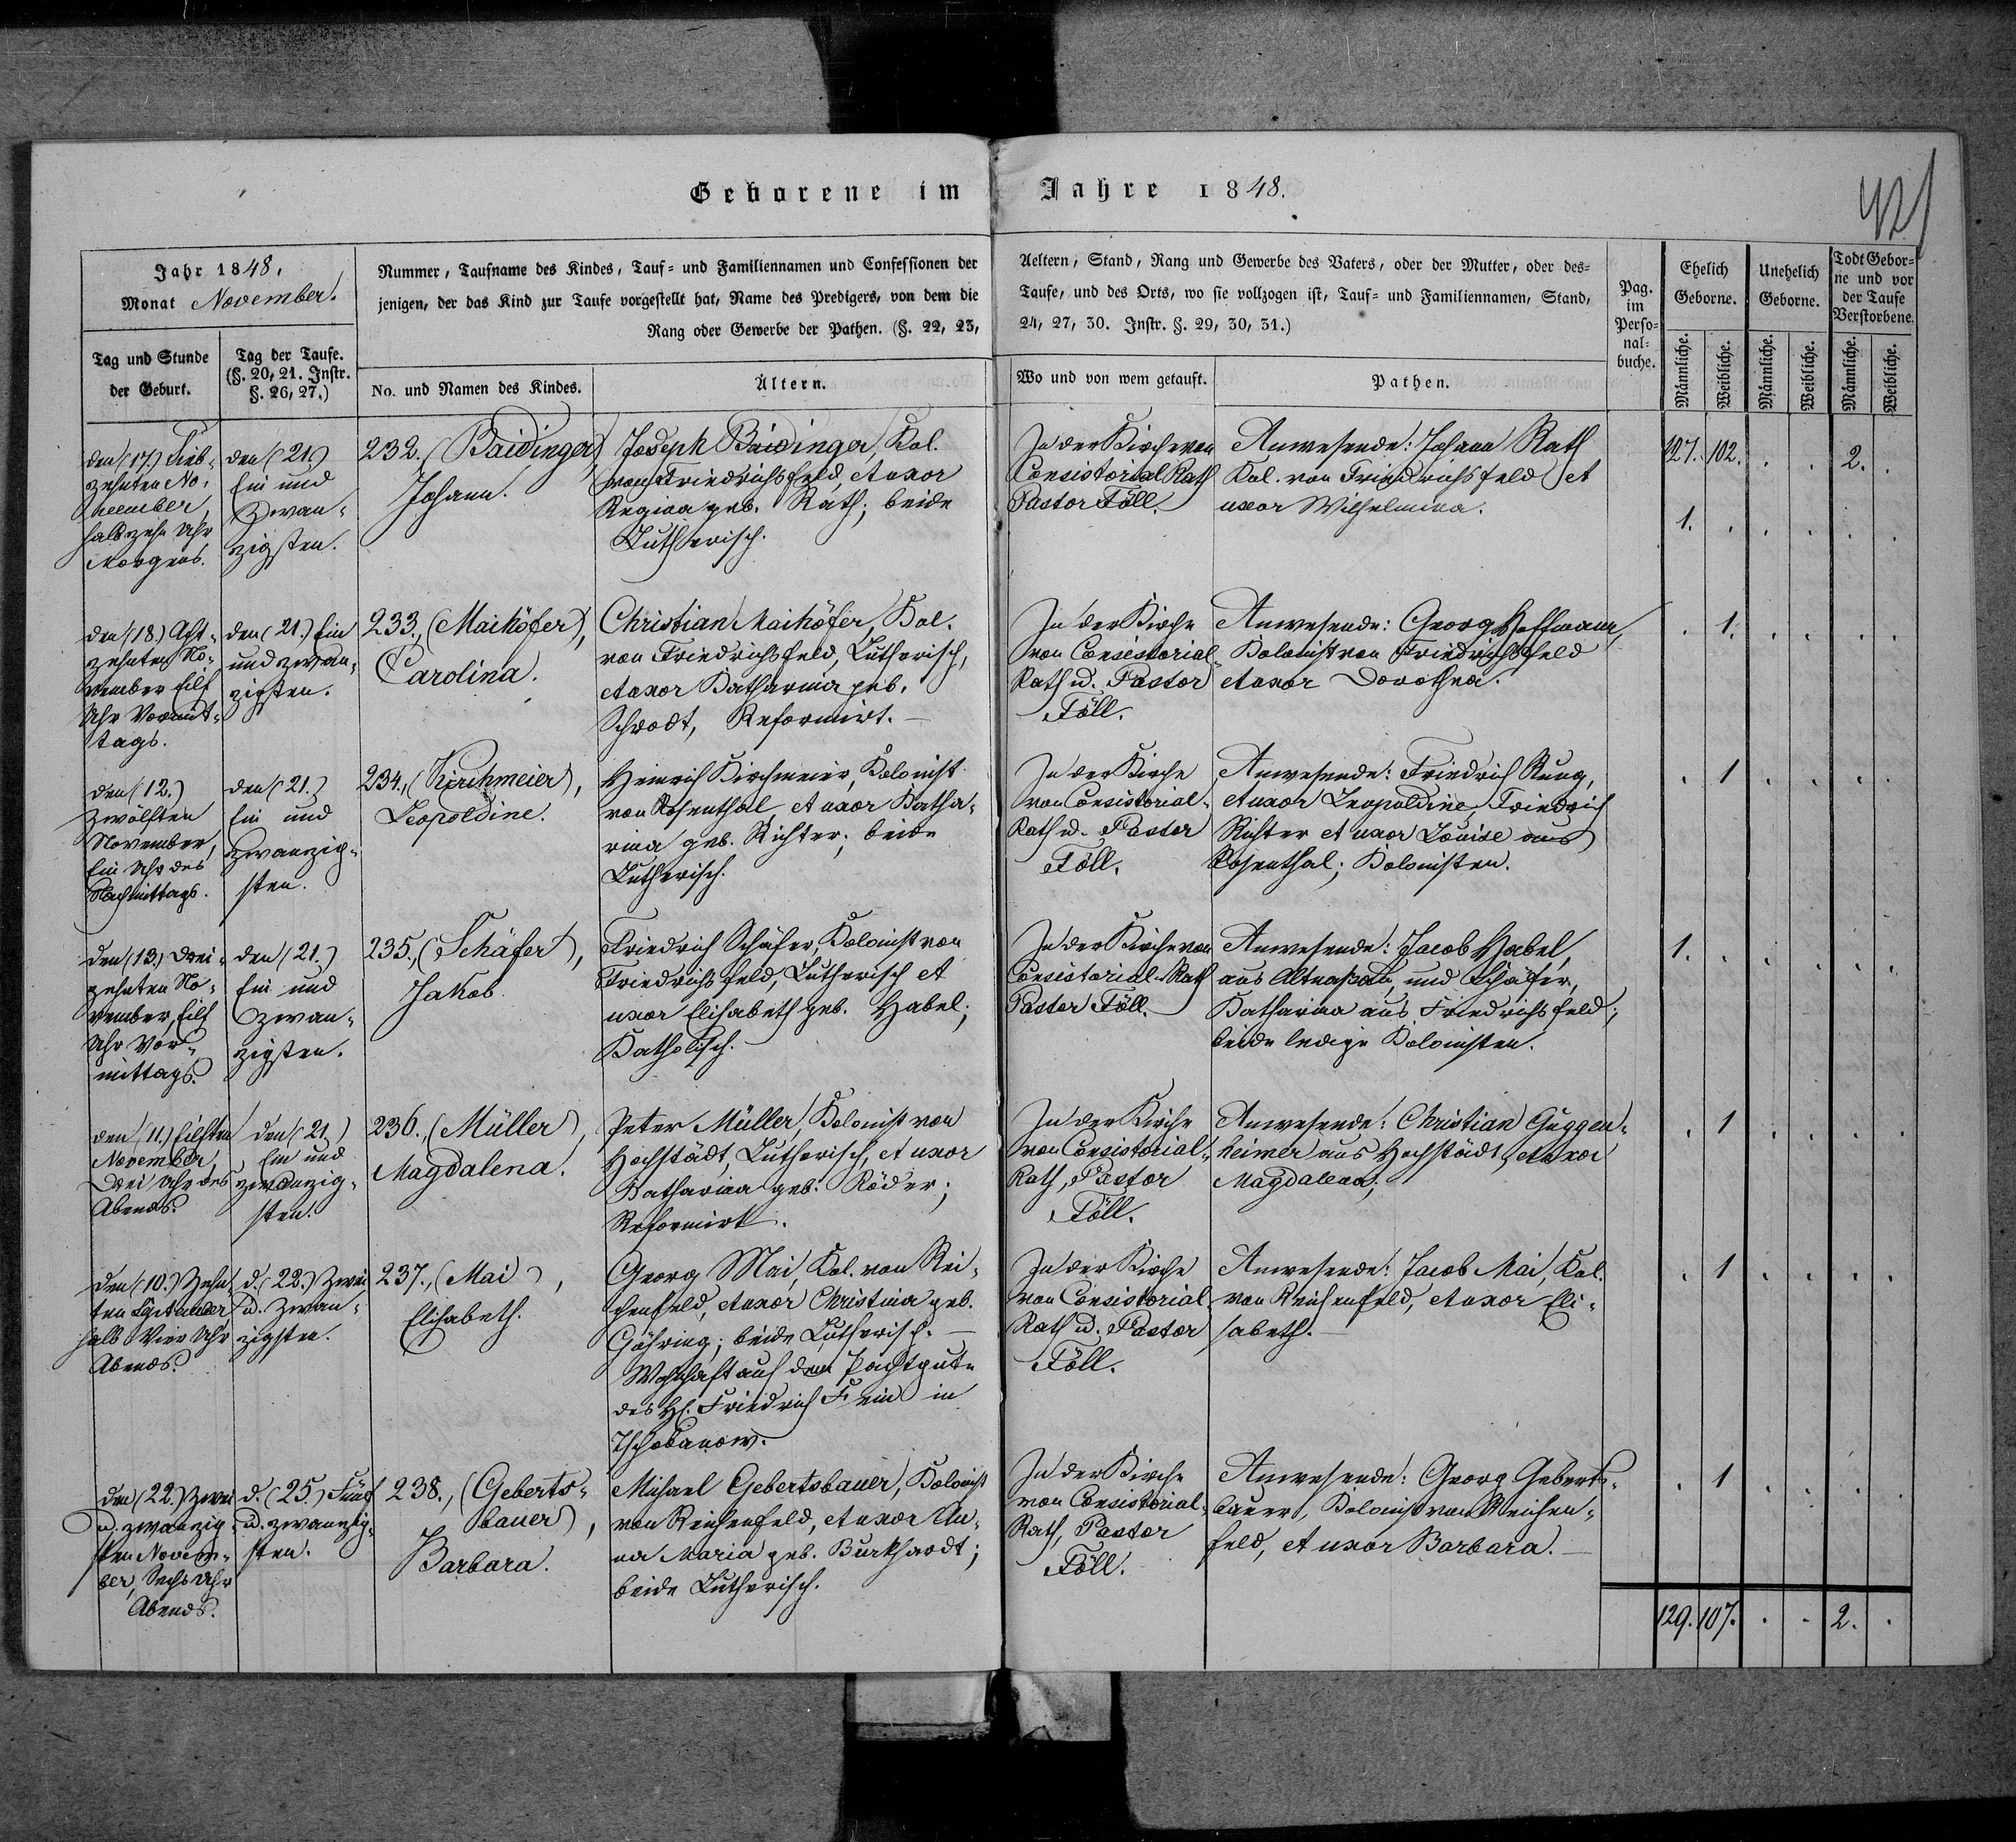 Geborene im Jahre 1848.
421
Jahr 1848.
Monat November.
Nummer, Taufname des Kindes, Tauf- und Familiennamen und Confessionen der
Aeltern, Stand, Rang und Gewerbe des Vaters, oder der Mutter, oder des-
jenigen, der das Kind zur Taufe vorgestellt hat, Name des Predigers, von dem die
Taufe, und des Orts, wo sie vollzogen ist, Tauf- und Familiennamen, Stand,
Rang oder Gewerbe der Pathen. (§. 22, 23,
24, 27, 30. Instr. §. 29, 30, 31.)
Pag.
im
Perso-
nal-
buche.
Ehelich
Geborne.
Unehelich
Geborne.
Todt Gebor-
ne und vor
der Taufe
Verstorbene.
Tag und Stunde
der Geburt.
Tag der Taufe.
(§. 20, 21. Instr.
§. 26, 27.)
No. und Namen des Kindes.
Ältern.
Wo und von wem getauft.
Pathen.
Männliche.
Weibliche.
Männliche.
Weibliche.
Männliche.
Weibliche.
den (17.) Sieb-
zehnten No-
vember,
halb zehn Uhr
Morgens.
den (21.)
Ein und
Zwan-
zigsten.
232. (Baidinger)
Johann.
Joseph Baidinger, Kol.
von Friedrichsfeld, et uxor
Regina geb. Rath; beide
Lutherisch.
In der Kirche von
Consistorial Rath
Pastor Föll.
Anwesende: Johann Rath
Kol. von Friedrichsfeld et
uxor Wilhelmina.
127. 102. . . 2. .
1. . . . . .
den (18.) Acht-
zehnten No-
vember Eilf
Uhr Vormit-
tags.
den (21.) Ein
und zwan-
zigsten.
233., (Maihöfer),
Carolina.
Christian Maihöfer, Kol.
von Friedrichsfeld, Lutherisch,
et uxor Katharina geb.
Schrodt, Reformirt. —
In der Kirche
von Consistorial-
Rath u. Pastor
Föll.
Anwesende: Georg Hoffmann,
Kolonist von Friedrichsfeld
et uxor Dorothea.
. 1. . . . .
den (12.)
Zwölften
November,
Ein Uhr des
Nachmittags.
den (21.)
Ein und
zwanzig-
sten.
234., (Kirchmeier),
Leopoldine.
Heinrich Kirchmeier, Kolonist
von Rosenthal, et uxor Katha-
rina geb. Richter; beide
Lutherisch.
In der Kirche
von Consistorial-
Rath u. Pastor
Föll.
Anwesende: Friedrich Rung,
et uxor Leopoldine, Friedrich
Richter et uxor Louise aus
Rosenthal; Kolonisten.
. 1 . . . .
den (13.) Drei-
zehnten No-
vember, Eilf
Uhr Vor-
mittags.
den (21.)
Ein und
zwan-
zigsten.
235., (Schäfer),
Jakob.
Friedrich Schäfer, Kolonist von
Friedrichsfeld, Lutherisch et
uxor Elisabeth geb. Habel;
Katholisch.
In der Kirche von
Consistorial-Rath
Pastor Föll.
Anwesende: Jacob Habel,
aus und Schäfer,
Katharina aus Friedrichsfeld;
beide ledige Kolonisten.
1. . . . . .
den (11.) Eilften
November,
Drei Uhr des
Abends.
den (21.)
Ein und
zwanzig-
sten.
236., (Müller),
Magdalena.
Peter Müller, Kolonist von
Hochstädt, Lutherisch, et uxor
Katharina geb. Röder;
Reformirt.
In der Kirche
von Consistorial-
Rath, Pastor
Föll.
Anwesende: Christian Guggen-
heimer aus Hochstädt, et uxor
Magdalena;
. 1 . . . .
den (10.) Zehn-
ten
halb Vier Uhr
Abends.
d. (22.) Zwei
u. zwan-
zigsten.
237., (Mai),
Elisabeth.
Georg Mai, Kol. von Rei-
chenfeld, et uxor Christina geb.
Göhring; beide Lutherisch. —
Wohnhaft auf dem Pachtgute
des H. Friedrich Fein in
Tschobanow.
In der Kirche
von Consistorial
Rath u. Pastor
Föll.
Anwesende: Jacob Mai, Kol.
von Reichenfeld, et uxor Eli-
sabeth. —
. 1 . . . .
den (22.) Zwei
u. zwanzig-
sten Novem-
ber, Sechs Uhr
Abends.
d. (25.) Fünf
u. zwanzig-
sten.
238., (Geberts-
bauer),
Barbara.
Michael Gebertsbauer, Kolonist
von Reichenfeld, et uxor An-
na Maria geb. Burkhardt;
beide Lutherisch.
In der Kirche
von Consistorial-
Rath, Pastor
Föll.
Anwesende: Georg Geberts-
bauer, Kolonist von Reichen-
feld, et uxor Barbara. —
. 1 . . . .
129. 107. . . 2. .